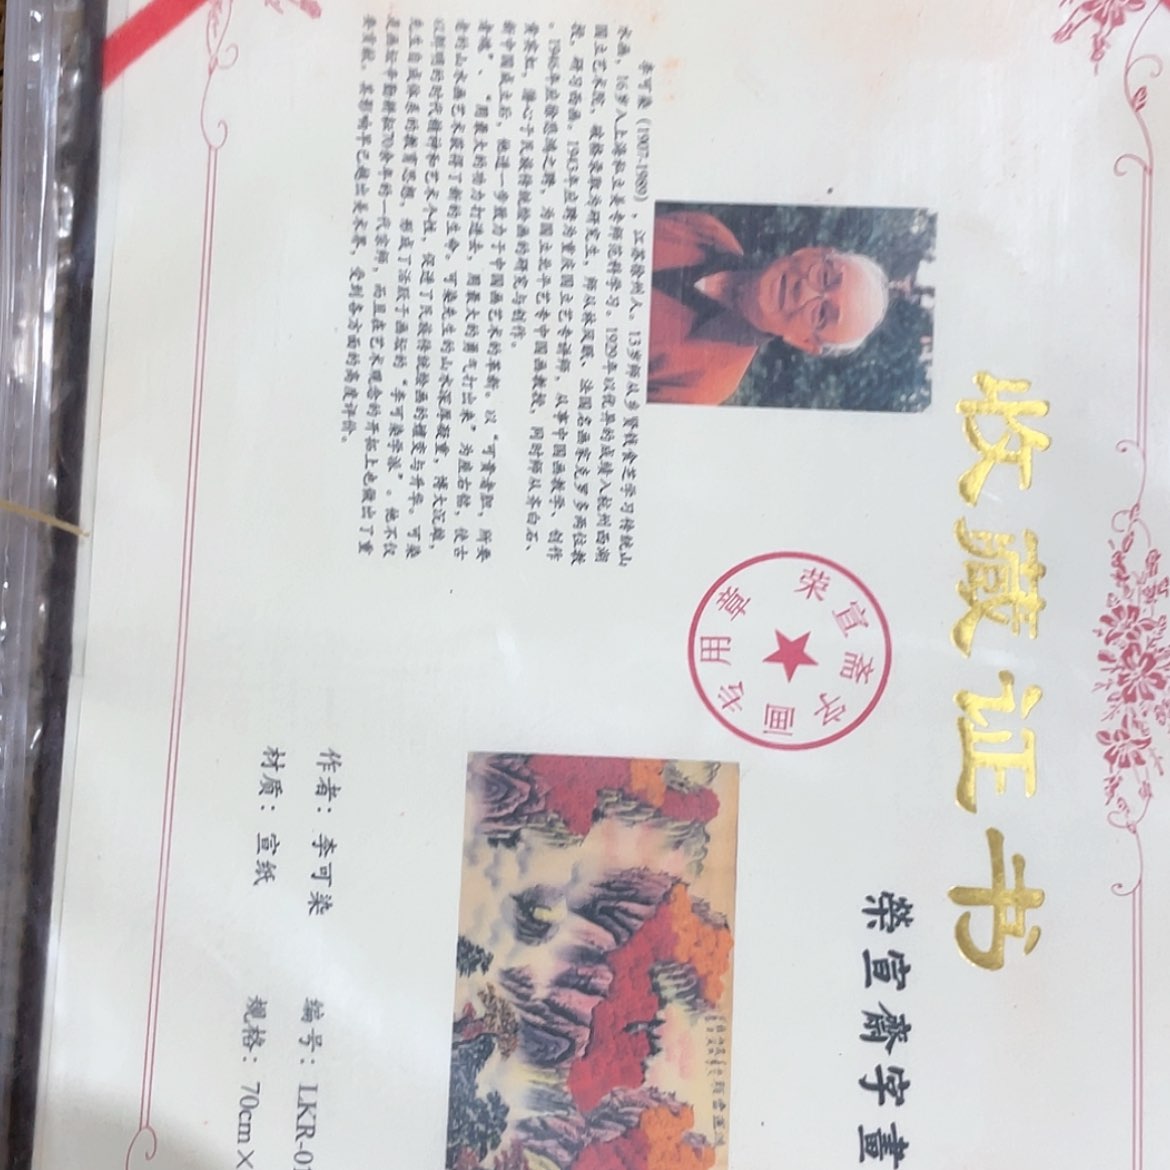 收藏证书
荣宣斋字画
专用章
榮宣齋字畫
李可染（1907-1989），江苏徐州人。13岁师从乡贤钱食芝学习传统山
水画，16岁入上海私立美专师范科学习。1929年以优异的成绩入杭州西湖
国立艺术院，破格录取为研究生，师从林风眠、法国名画家克罗多两位教
授，研习西画。1943年应聘为重庆国立艺专讲师，从事中国画教学、创作
。1946年应徐悲鸿之聘，为国立北平艺专中国画教授，同时师从齐白石、
黄宾虹，潜心于民族传统绘画的研究与创作。
新中国成立后，他进一步致力于中国画艺术的革新。以“可贵者胆，所要
者魂”、“用最大的功力打进去，用最大的勇气打出来”为座右铭，使古
老的山水画艺术获得了新的生命。可染先生的山水深厚凝重，博大沉雄，
以鲜明的时代精神和艺术个性，促进了民族传统绘画的嬗变与升华。可染
先生自成体系的教育思想，形成了活跃于画坛的“李可染学派”。他不仅
是画坛辛勤耕耘70余年的一代宗师，而且在艺术观念的开拓上也做出了重
要贡献。其影响早已越出美术界，受到各方面的高度评价。
作者：李可染
编号：LKR-01
材质：宣纸
规格：70cm×